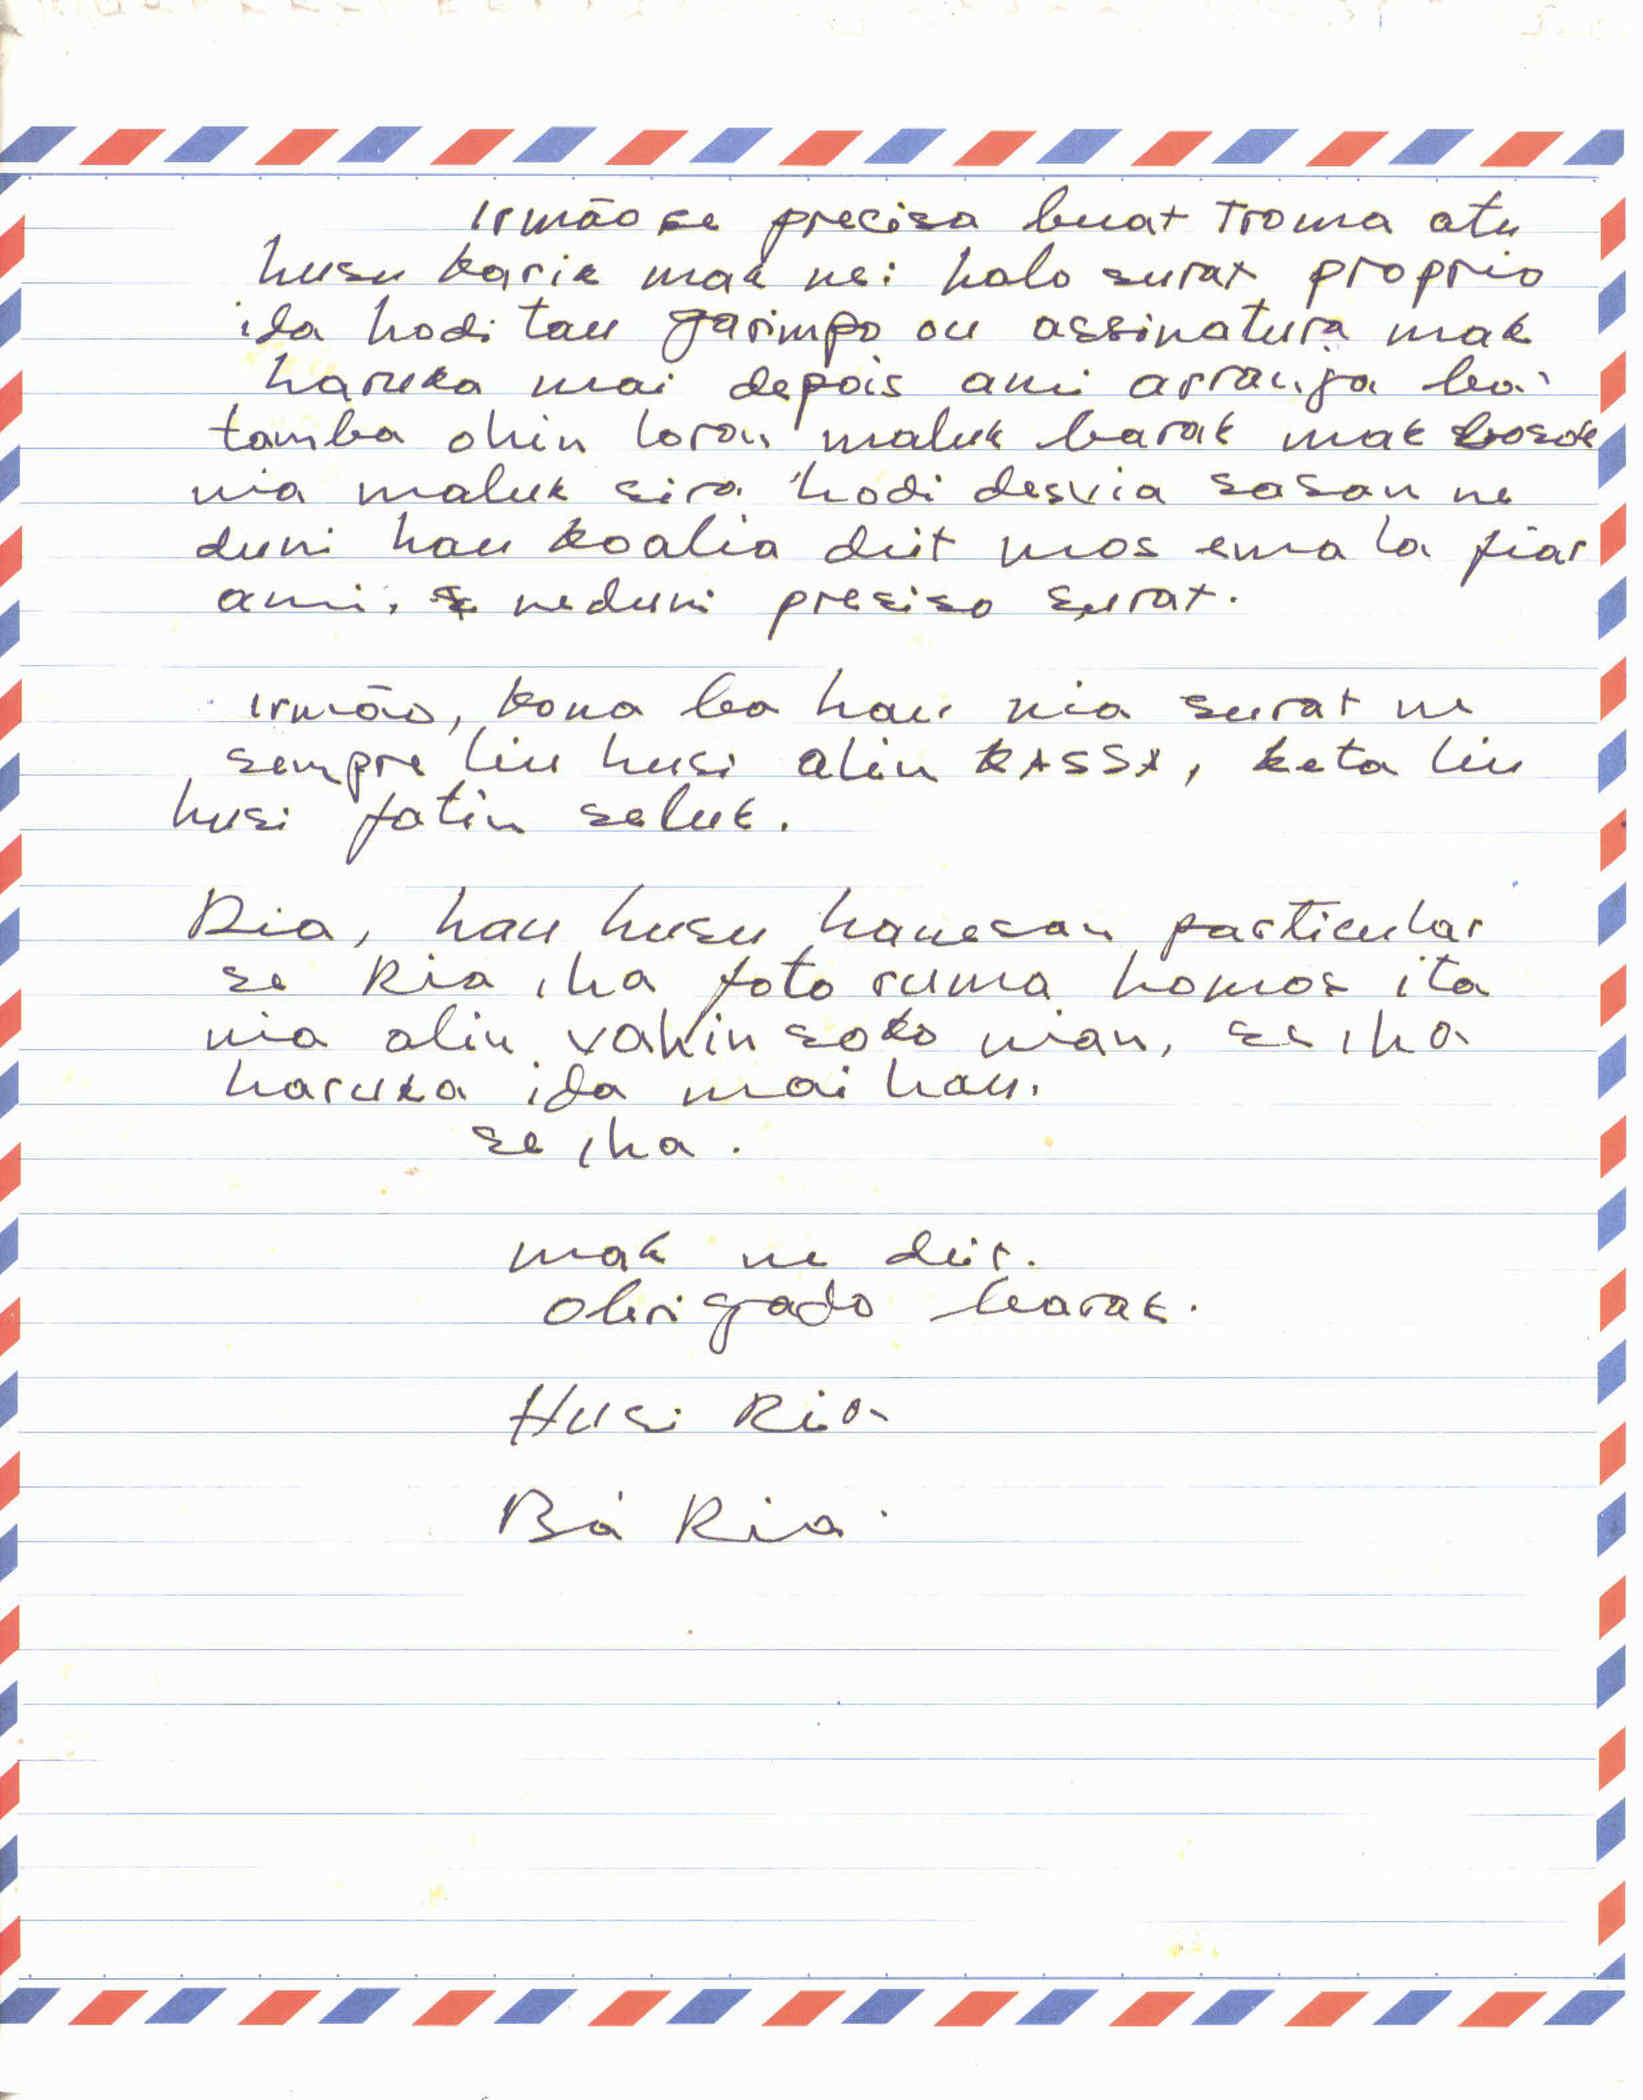 Irmão se precisa buat roma atu
husu karik mak nei halo surat proprio
ida hodi tau garimpo ou assinatura mak
haruka mai depois ami arranja ba
tamba ohin loron maluk barak mak bosok
nia maluk sira hodi desvia sasan ne
duni hau koalia diit mos ema la fiar
ami. neduni presiso surat.
Irmão, kona ba hau nia surat ne
sempre liu husi alin KASSA, keta liu
husi fatin seluk.
Ria, hau husu hanesan particular
se Ria iha foto ruma homos ita
nia alin vahin soko nian, se iha
haruka ida mai hau.
se iha.
mak ne diit.
obrigado barak.
Husi Ria
Bá Ria.